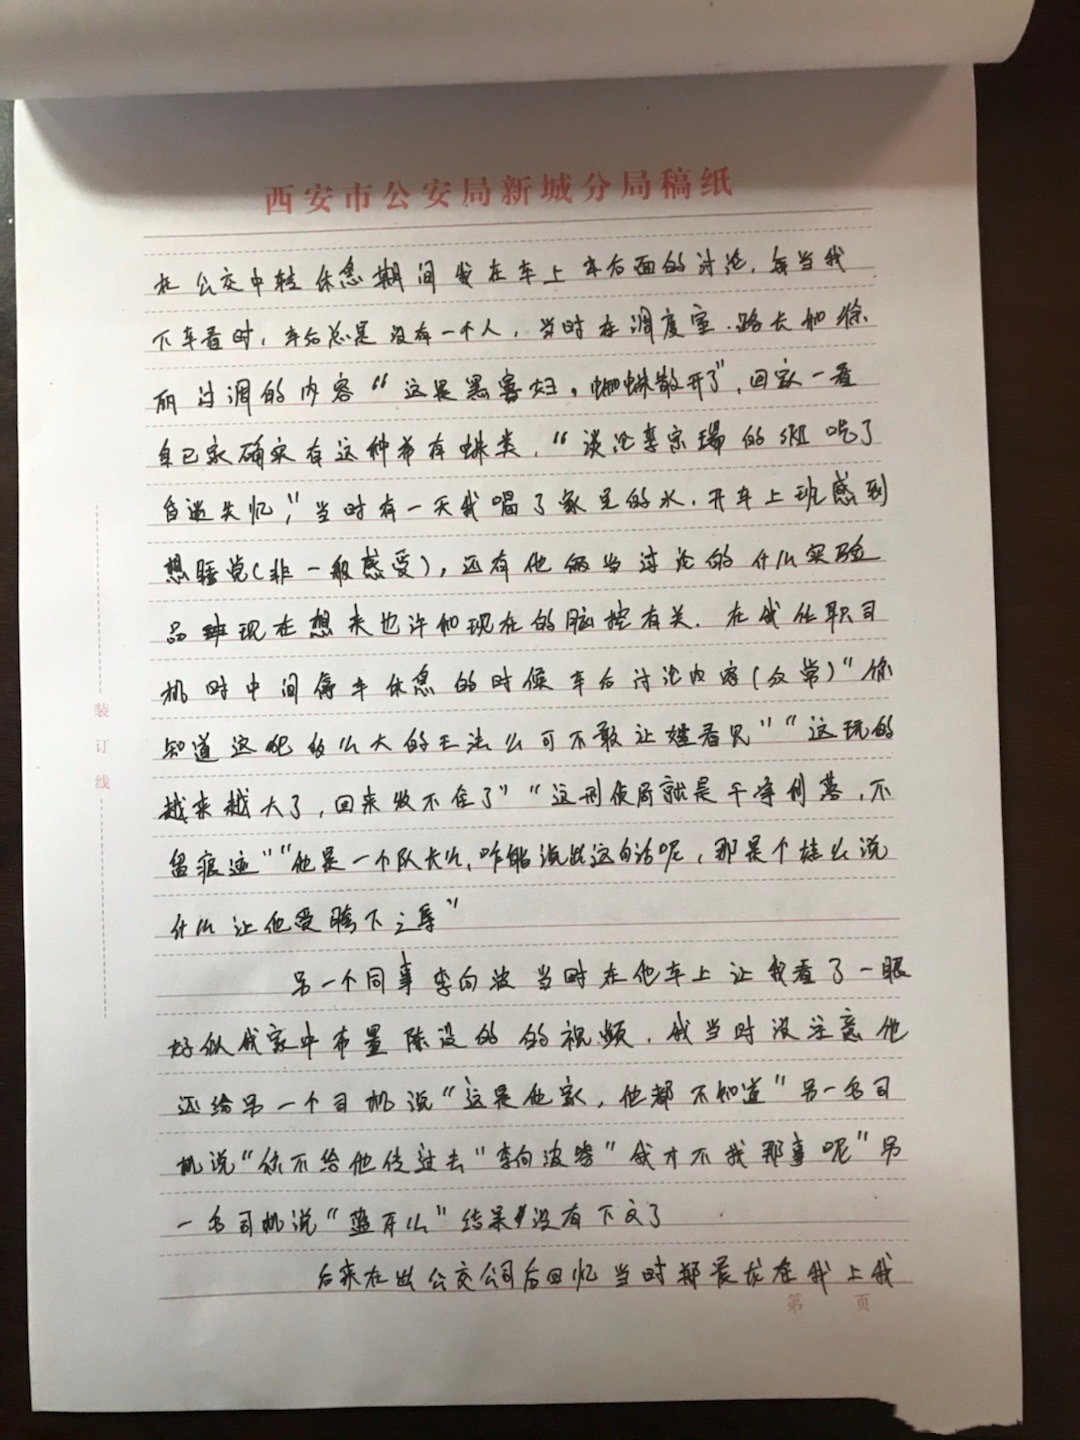 西安市公安局新城分局稿纸
在公交中转休息期间我在车上车后面的讨论，每当我
下车看时，车后总是没有一个人，当时在调度室．路长和徐
丽过调的内容“这是黑寡妇，蜘蛛散开了”，回家一看
自己家确实有这种希有蛛类．“谈论李宗瑞的
自迷失忆”，当时有一天我喝了家里的水．开车上班感到
想睡觉（非一般感受），还有他俩当讨论的什么实验
品 现在想来也许和现在的脑控有关．在我任职司
机时中间停车休息的时候车后讨论内容（反常）“你
知道这呢 么大的王法么可不敢让 看见”“这玩的
越来越大了，回来收不住了”“这刑侦局就是干净利落，不
留痕迹”“他是一个队长么，咋能说出这句话呢，那是个 么说
什么让他受胯下之辱”
另一个同事李向波当时在他车上让我看了一眼
好似我家中布置陈设的的视频．我当时没注意他
还给另一个司机说“这是他家，他都不知道”另一名司
机说“你不给他传过去”李向波答“我才不找那事呢”另
一名司机说“蓝牙么”结果没有下文了
后来在出公交公司后回忆当时郑 在我上我
装
订
线
第 页